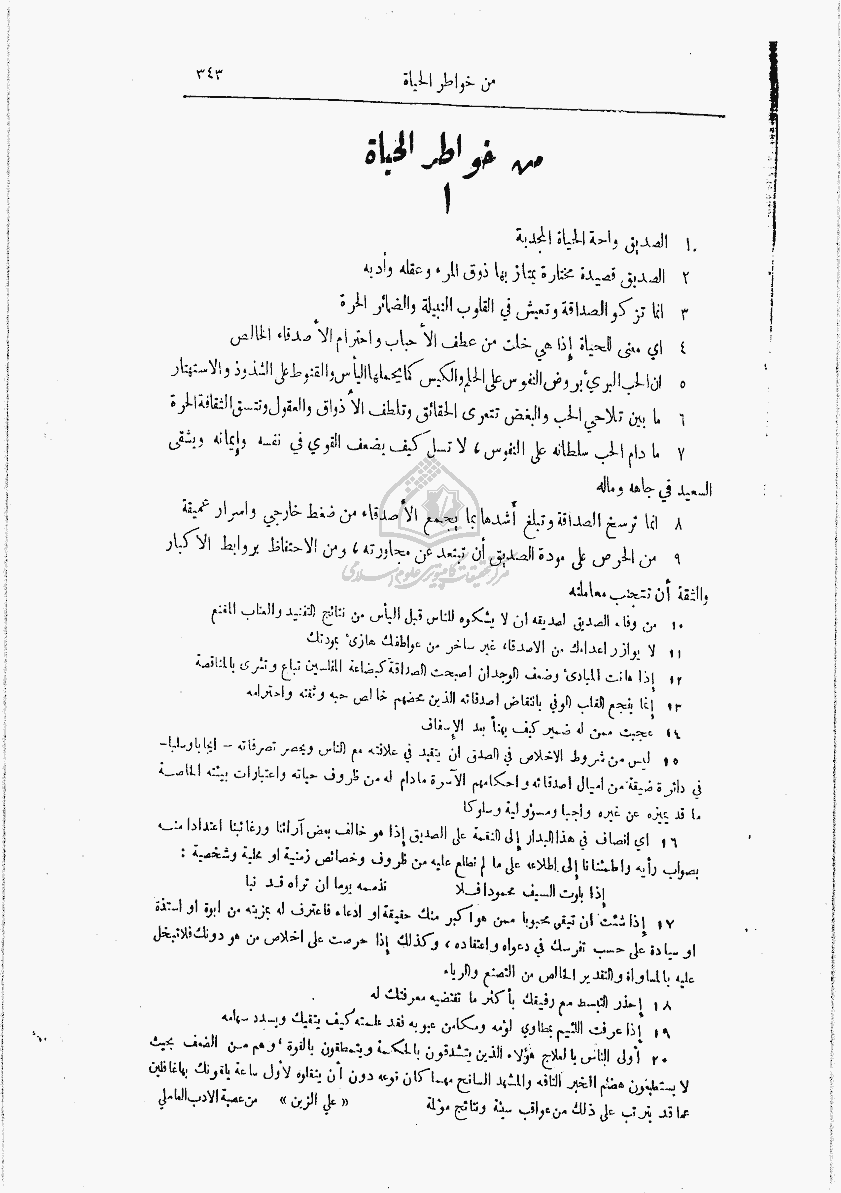 من خواطر الحياة ٣٤٣
من خواطر الحياة
١
١٠ الصديق واحة الحياة المجدبة
٢ الصديق قصيدة مختارة يمتاز بها ذوق المرء وعقله وأدبه
٣ انما تزكو الصداقة وتعيش في القلوب النبيلة والضمائر الحرة
٤ اي معنى للحياة إذا هي خلت من عطف الأحباب واحترام الأصدقاء الخالص
٥ ان الحب البريء يروض النفوس على الحلم والكيس كما يحملها اليأس والقنوط على الشذوذ والاستهتار
٦ ما بين تلاحي الحب والبغض تتعرى الحقائق وتلطف الأذواق والعقول وتتسق الثقافة الحرة
٧ ما دام الحب سلطانه على النفوس ، لا تسل كيف يضعف القوي في نفسه وإيمانه ويشقى
السعيد في جاهه وماله
٨ انما ترسخ الصداقة وتبلغ أشدها بما يجمع الأصدقاء من ضغط خارجي واسرار عميقة
٩ من الحرص على مودة الصديق أن تبتعد عن مجاورته ، ومن الاحتفاظ بروابط الاكبار
والثقة أن تتجنب معاملته
مركز تحقيقات كامپيوتری علوم اسلامی
١٠ من وفاء الصديق لصديقه ان لا يشكوه للناس قبل اليأس من نتائج التفنيد والعتاب المقنع
١١ لا يوازر اعداءك من الاصدقاء غير ساخر من عواطفك هازىء بمودتك
١٢ إذا هانت المبادىء وضعف الوجدان اصبحت الصداقة كبضاعة المفلسين تباع وتشرى بالمناقصة
١٣ إنما يفجع القلب الوفي بانتقاض اصدقائه الذين محضهم خالص حبه وثقته واحترامه
١٤ عجبت ممن له ضمير كيف يهنأ بعد الإسفاف
١٥ ليس من شروط الاخلاص في الصدق ان يتقيد في علاقته مع الناس ويحصر تصرفاته – ايجابا وسلبا –
في دائرة ضيقة من اميال اصدقائه واحكامهم الآسرة مادام له من ظروف حياته واعتبارات بيئته الخاصة
ما قد يميزه عن غيره واجبا ومسؤولية وسلوكا
١٦ اي انصاف في هذا البدار إلى النقمة على الصديق إذا هو خالف بعض آرائنا ورغائبنا اعتدادا منه
بصواب رأيه واطمئنانا إلى اطلاعه على ما لم نطلع عليه من ظروف وخصائص زمنية او محلية وشخصية :
إذا بلوت السيف محمودا فلا تذممه يوما ان تراه قد نبا
١٧ إذا شئت ان تبقى محبوبا ممن هو اكبر منك حقيقة او ادعاء فاعترف له بمزيته من ابوة او استذة
او سيادة على حسب تفرسك في دعواه واعتقاده ، وكذلك إذا حرصت على اخلاص من هو دونك فلا تبخل
عليه بالمساواة والتقدير الخالص من التصنع والرياء
١٨ إحذر التبسط مع رفيقك بأكثر ما تقتضيه معرفتك له
١٩ إذا عرفت اللئيم بمطاوي لؤمه ومكامن عيوبه فقد علمته كيف يتقيك ويسدد سهامه
٢٠ أولى الناس بالعلاج هؤلاء الذين يتشدقون بالحكمة ويتمطقون بالقوة ، وهم من الضعف بحيث
لا يستطيعون هضم الخبر التافه والمشهد السانح مهما كان نوعه دون أن يتقاوه لأول ساعة يلقونك بها غافلين
عما قد يترتب على ذلك من عواقب سيئة ونتائج مؤلمة « علي الزين » من عصبة الادب العاملي